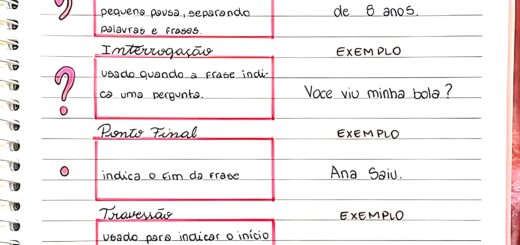 pequena pausa, separando
palavras e frases.
de 8 anos.
Interrogação
EXEMPLO
?
usado quando a frase indi-
ca uma pergunta.
Voce viu minha bola?
Ponto Final
EXEMPLO
.
indica o fim da frase
Ana Saiu.
Travessão
EXEMPLO
usado para indicar o início